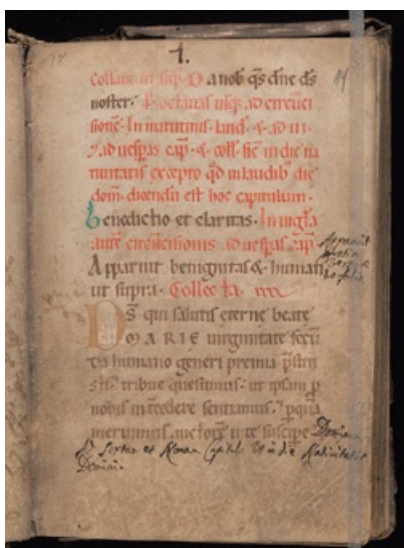 18
1.
Collam ut sup. Da nob qs dne ds
noster. Per octavas usq; ad circuci
sione. In matutinis. laud. & ad iii.
& ad vespas cap. & coll. sic in die na
tivitatis excepto qd in laudib; die
dom. dicendu est hoc capitulum.
Benedictio et claritas. In vigla
aute circucisionis ad vespas cap.
Apparuit benignitas & humani
ut supra. Collecta.
Ds qui salutis eterne beate
MARIE virginitate fecu
da humano generi premia pstiti
sti. tribue quesumus. ut ipsam p
nobis intcedere sentiamus. p qua
meruimus. auctore vite suscipe
Ad Sextam et Nonam Capitula ut in die Nativitatis
Domini.